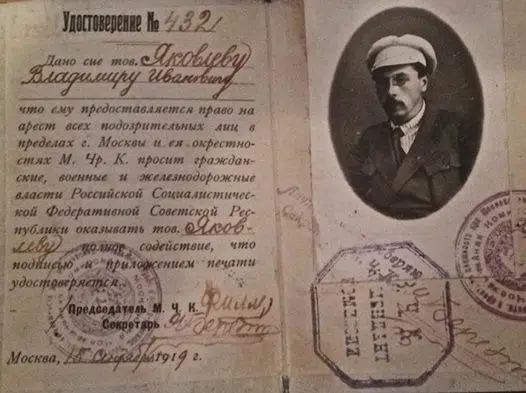 Удостоверение № 432
Дано сие тов. Яковлеву
Владимиру Ивановичу
что ему предоставляется право на
арест всех подозрительных лиц в
пределах г. Москвы и ея окрестно-
стях М. Чр. К. просит граждан-
ские, военные и железнодорожные
власти Российской Социалистичес-
кой Федеративной Советской Рес-
публики оказывать тов. Яков-
леву полное содействие, что
подписью и приложением печати
удостоверяется.
Председатель М. Ч. К.
Секретарь
Москва, 1919 г.